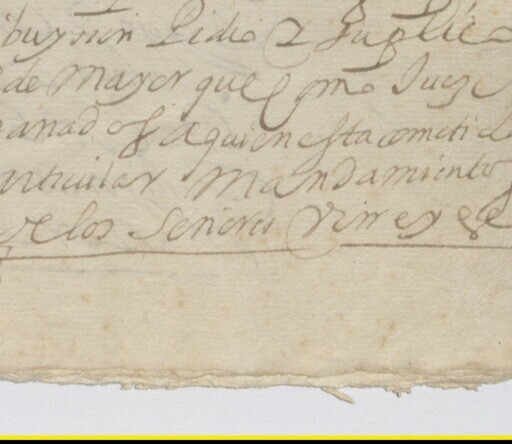 ibuyçion Pidio 2 Suplic
de Mayor que Como Juez
canados aquien esta cometid
articular Mandamiento
de los Señores Virreyes